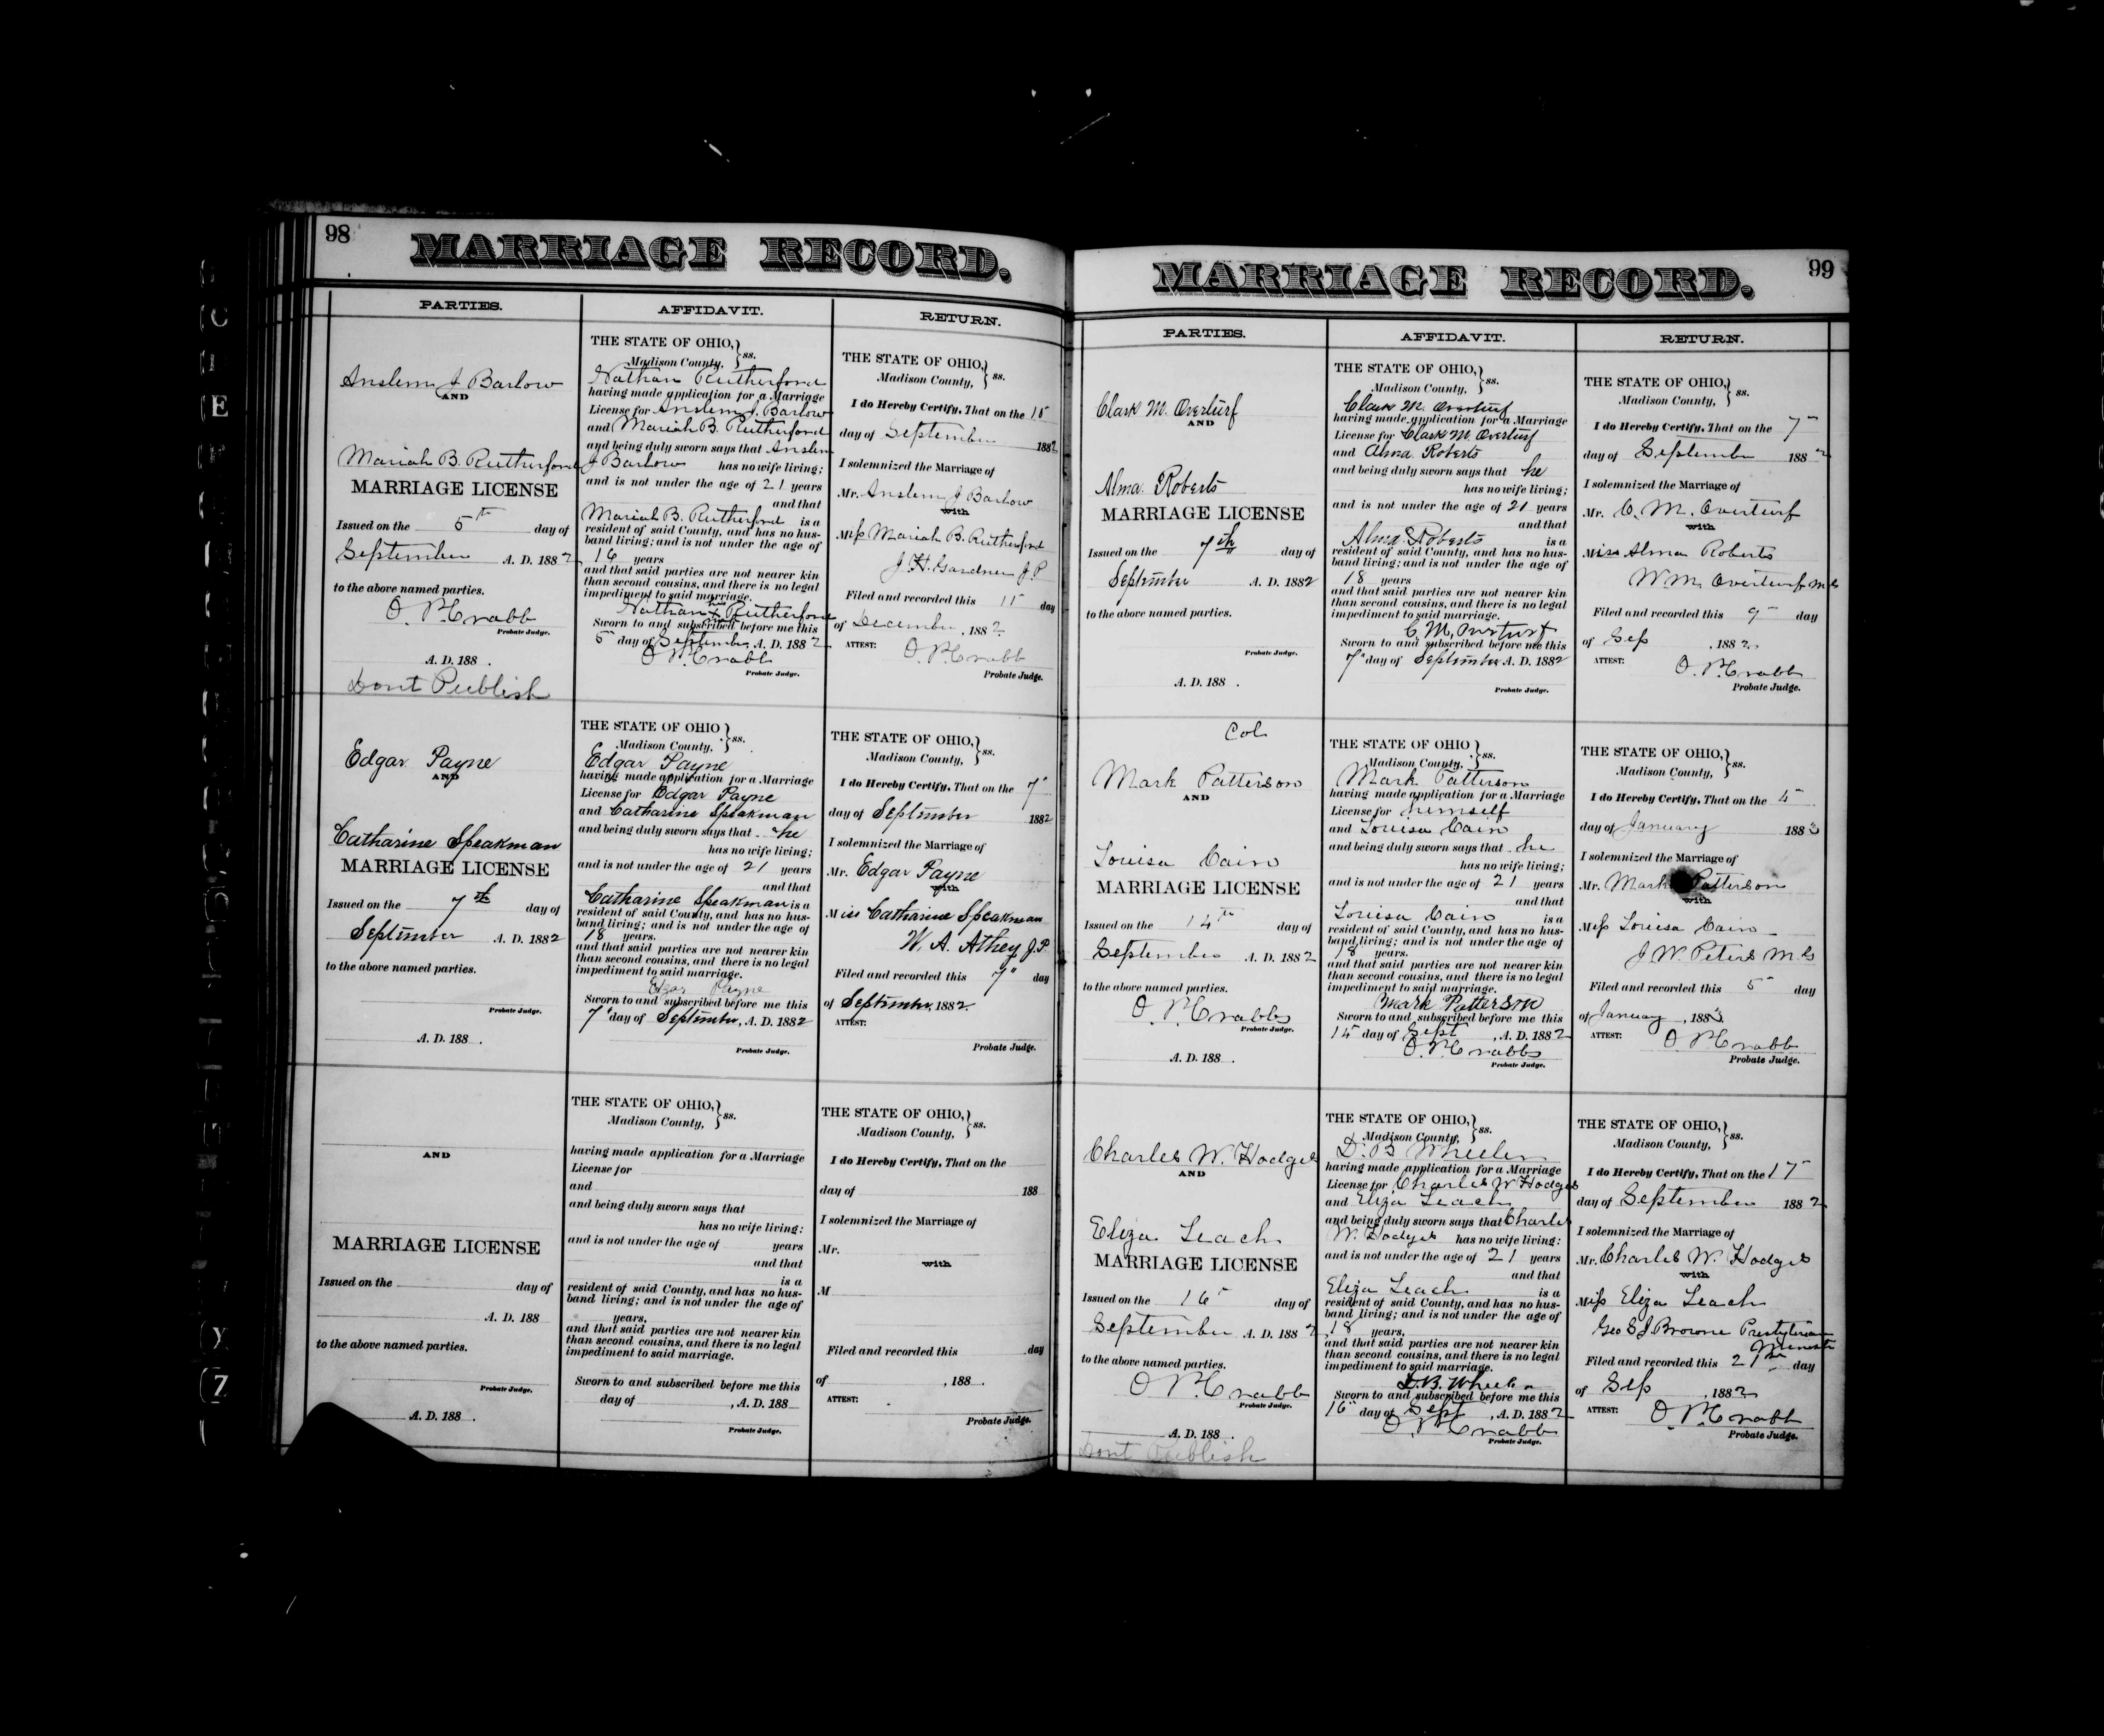 98
MARRIAGE RECORD.
PARTIES.
Anslem J Barlow
AND
Mariah B. Rutherford
MARRIAGE LICENSE
Issued on the 5th day of
September A. D. 1882
to the above named parties.
O. P. Crabb
Probate Judge.
A. D. 188 .
Dont Publish
AFFIDAVIT.
THE STATE OF OHIO, } ss.
Madison County,
Nathan Rutherford
having made application for a Marriage
License for Anslem J. Barlow
and Mariah B. Rutherford
and being duly sworn says that Anslem
J Barlow has no wife living;
and is not under the age of 21 years
and that
Mariah B. Rutherford is a
resident of said County, and has no hus-
band living; and is not under the age of
16 years
and that said parties are not nearer kin
than second cousins, and there is no legal
impediment to said marriage.
Nathan x Rutherford
Sworn to and subscribed before me this
5 day of September, A. D. 1882
O. P. Crabb
Probate Judge.
RETURN.
THE STATE OF OHIO, } ss.
Madison County,
I do Hereby Certify, That on the
day of September 1882
I solemnized the Marriage of
Mr. Anslem J Barlow
with
Miss Mariah B. Rutherford
J. H. Gardner J. P.
Filed and recorded this 11 day
of December, 1882
ATTEST: O. P. Crabb
Probate Judge.
Edgar Payne
AND
Catharine Speakman
MARRIAGE LICENSE
Issued on the 7th day of
September A. D. 1882
to the above named parties.
Probate Judge.
A. D. 188 .
THE STATE OF OHIO } ss.
Madison County,
Edgar Payne
having made application for a Marriage
License for Edgar Payne
and Catharine Speakman
and being duly sworn says that he
has no wife living;
and is not under the age of 21 years
and that
Catharine Speakman is a
resident of said County, and has no hus-
band living; and is not under the age of
18 years.
and that said parties are not nearer kin
than second cousins, and there is no legal
impediment to said marriage.
Edgar Payne
Sworn to and subscribed before me this
7" day of September, A. D. 1882
Probate Judge.
THE STATE OF OHIO, } ss.
Madison County,
I do Hereby Certify, That on the 7"
day of September 1882
I solemnized the Marriage of
Mr. Edgar Payne
with
Miss Catharine Speakman
W. A. Athey J. P.
Filed and recorded this 7" day
of September, 1882
ATTEST:
Probate Judge.
AND
MARRIAGE LICENSE
Issued on the day of
A. D. 188
to the above named parties.
Probate Judge.
A. D. 188 .
THE STATE OF OHIO, } ss.
Madison County,
having made application for a Marriage
License for
and
and being duly sworn says that
has no wife living:
and is not under the age of years
and that
is a
resident of said County, and has no hus-
band living; and is not under the age of
years,
and that said parties are not nearer kin
than second cousins, and there is no legal
impediment to said marriage.
Sworn to and subscribed before me this
day of , A. D. 188
Probate Judge.
THE STATE OF OHIO, } ss.
Madison County,
I do Hereby Certify, That on the
day of 188
I solemnized the Marriage of
Mr.
with
M
Filed and recorded this day
of , 188 .
ATTEST:
Probate Judge.
99
MARRIAGE RECORD.
PARTIES.
Clark M. Overturf
AND
Alma Roberts
MARRIAGE LICENSE
Issued on the 7th day of
September A. D. 1882
to the above named parties.
Probate Judge.
A. D. 188 .
AFFIDAVIT.
THE STATE OF OHIO, } ss.
Madison County,
Clark M. Overturf
having made application for a Marriage
License for Clark M Overturf
and Alma Roberts
and being duly sworn says that he
has no wife living;
and is not under the age of 21 years
and that
Alma Roberts is a
resident of said County, and has no hus-
band living; and is not under the age of
18 years
and that said parties are not nearer kin
than second cousins, and there is no legal
impediment to said marriage.
C. M. Overturf
Sworn to and subscribed before me this
7" day of September A. D. 1882
Probate Judge.
RETURN.
THE STATE OF OHIO, } ss.
Madison County,
I do Hereby Certify, That on the 7"
day of September 1882
I solemnized the Marriage of
Mr. C. M. Overturf
with
Miss Alma Roberts
Wm. Overturf M G
Filed and recorded this 9" day
of Sep, 1882
ATTEST: O. P. Crabb
Probate Judge.
Col
Mark Patterson
AND
Louisa Cain
MARRIAGE LICENSE
Issued on the 14th day of
September A. D. 1882
to the above named parties.
O. P. Crabb
Probate Judge.
A. D. 188 .
THE STATE OF OHIO } ss.
Madison County,
Mark Patterson
having made application for a Marriage
License for himself
and Louisa Cain
and being duly sworn says that he
has no wife living;
and is not under the age of 21 years
and that
Louisa Cain is a
resident of said County, and has no hus-
band living; and is not under the age of
18 years.
and that said parties are not nearer kin
than second cousins, and there is no legal
impediment to said marriage.
Mark Patterson
Sworn to and subscribed before me this
day of Sept, A. D. 1882
O. P. Crabb
Probate Judge.
THE STATE OF OHIO, } ss.
Madison County,
I do Hereby Certify, That on the
day of January 1883
I solemnized the Marriage of
Mr. Mark Patterson
with
Miss Louisa Cain
J. W. Peters M. G
Filed and recorded this 5" day
of January, 1883
ATTEST: O. P. Crabb
Probate Judge.
Charles W. Hodges
AND
Eliza Leach
MARRIAGE LICENSE
Issued on the 16" day of
September A. D. 1882
to the above named parties.
O. P. Crabb
Probate Judge.
A. D. 188 .
Dont Publish
THE STATE OF OHIO, } ss.
Madison County,
D. B Wheeler
having made application for a Marriage
License for Charles W Hodges
and Eliza Leach
and being duly sworn says that Charles
W. Hodges has no wife living:
and is not under the age of 21 years
and that
Eliza Leach is a
resident of said County, and has no hus-
band living; and is not under the age of
18 years,
and that said parties are not nearer kin
than second cousins, and there is no legal
impediment to said marriage.
D. B. Wheeler
Sworn to and subscribed before me this
16" day of Sept, A. D. 1882
O. P. Crabb
Probate Judge.
THE STATE OF OHIO, } ss.
Madison County,
I do Hereby Certify, That on the 17"
day of September 1882
I solemnized the Marriage of
Mr. Charles W. Hodges
with
Miss Eliza Leach
Geo S J Browne Presbyterian
Minister
Filed and recorded this 21st day
of Sep, 1882
ATTEST: O. P. Crabb
Probate Judge.